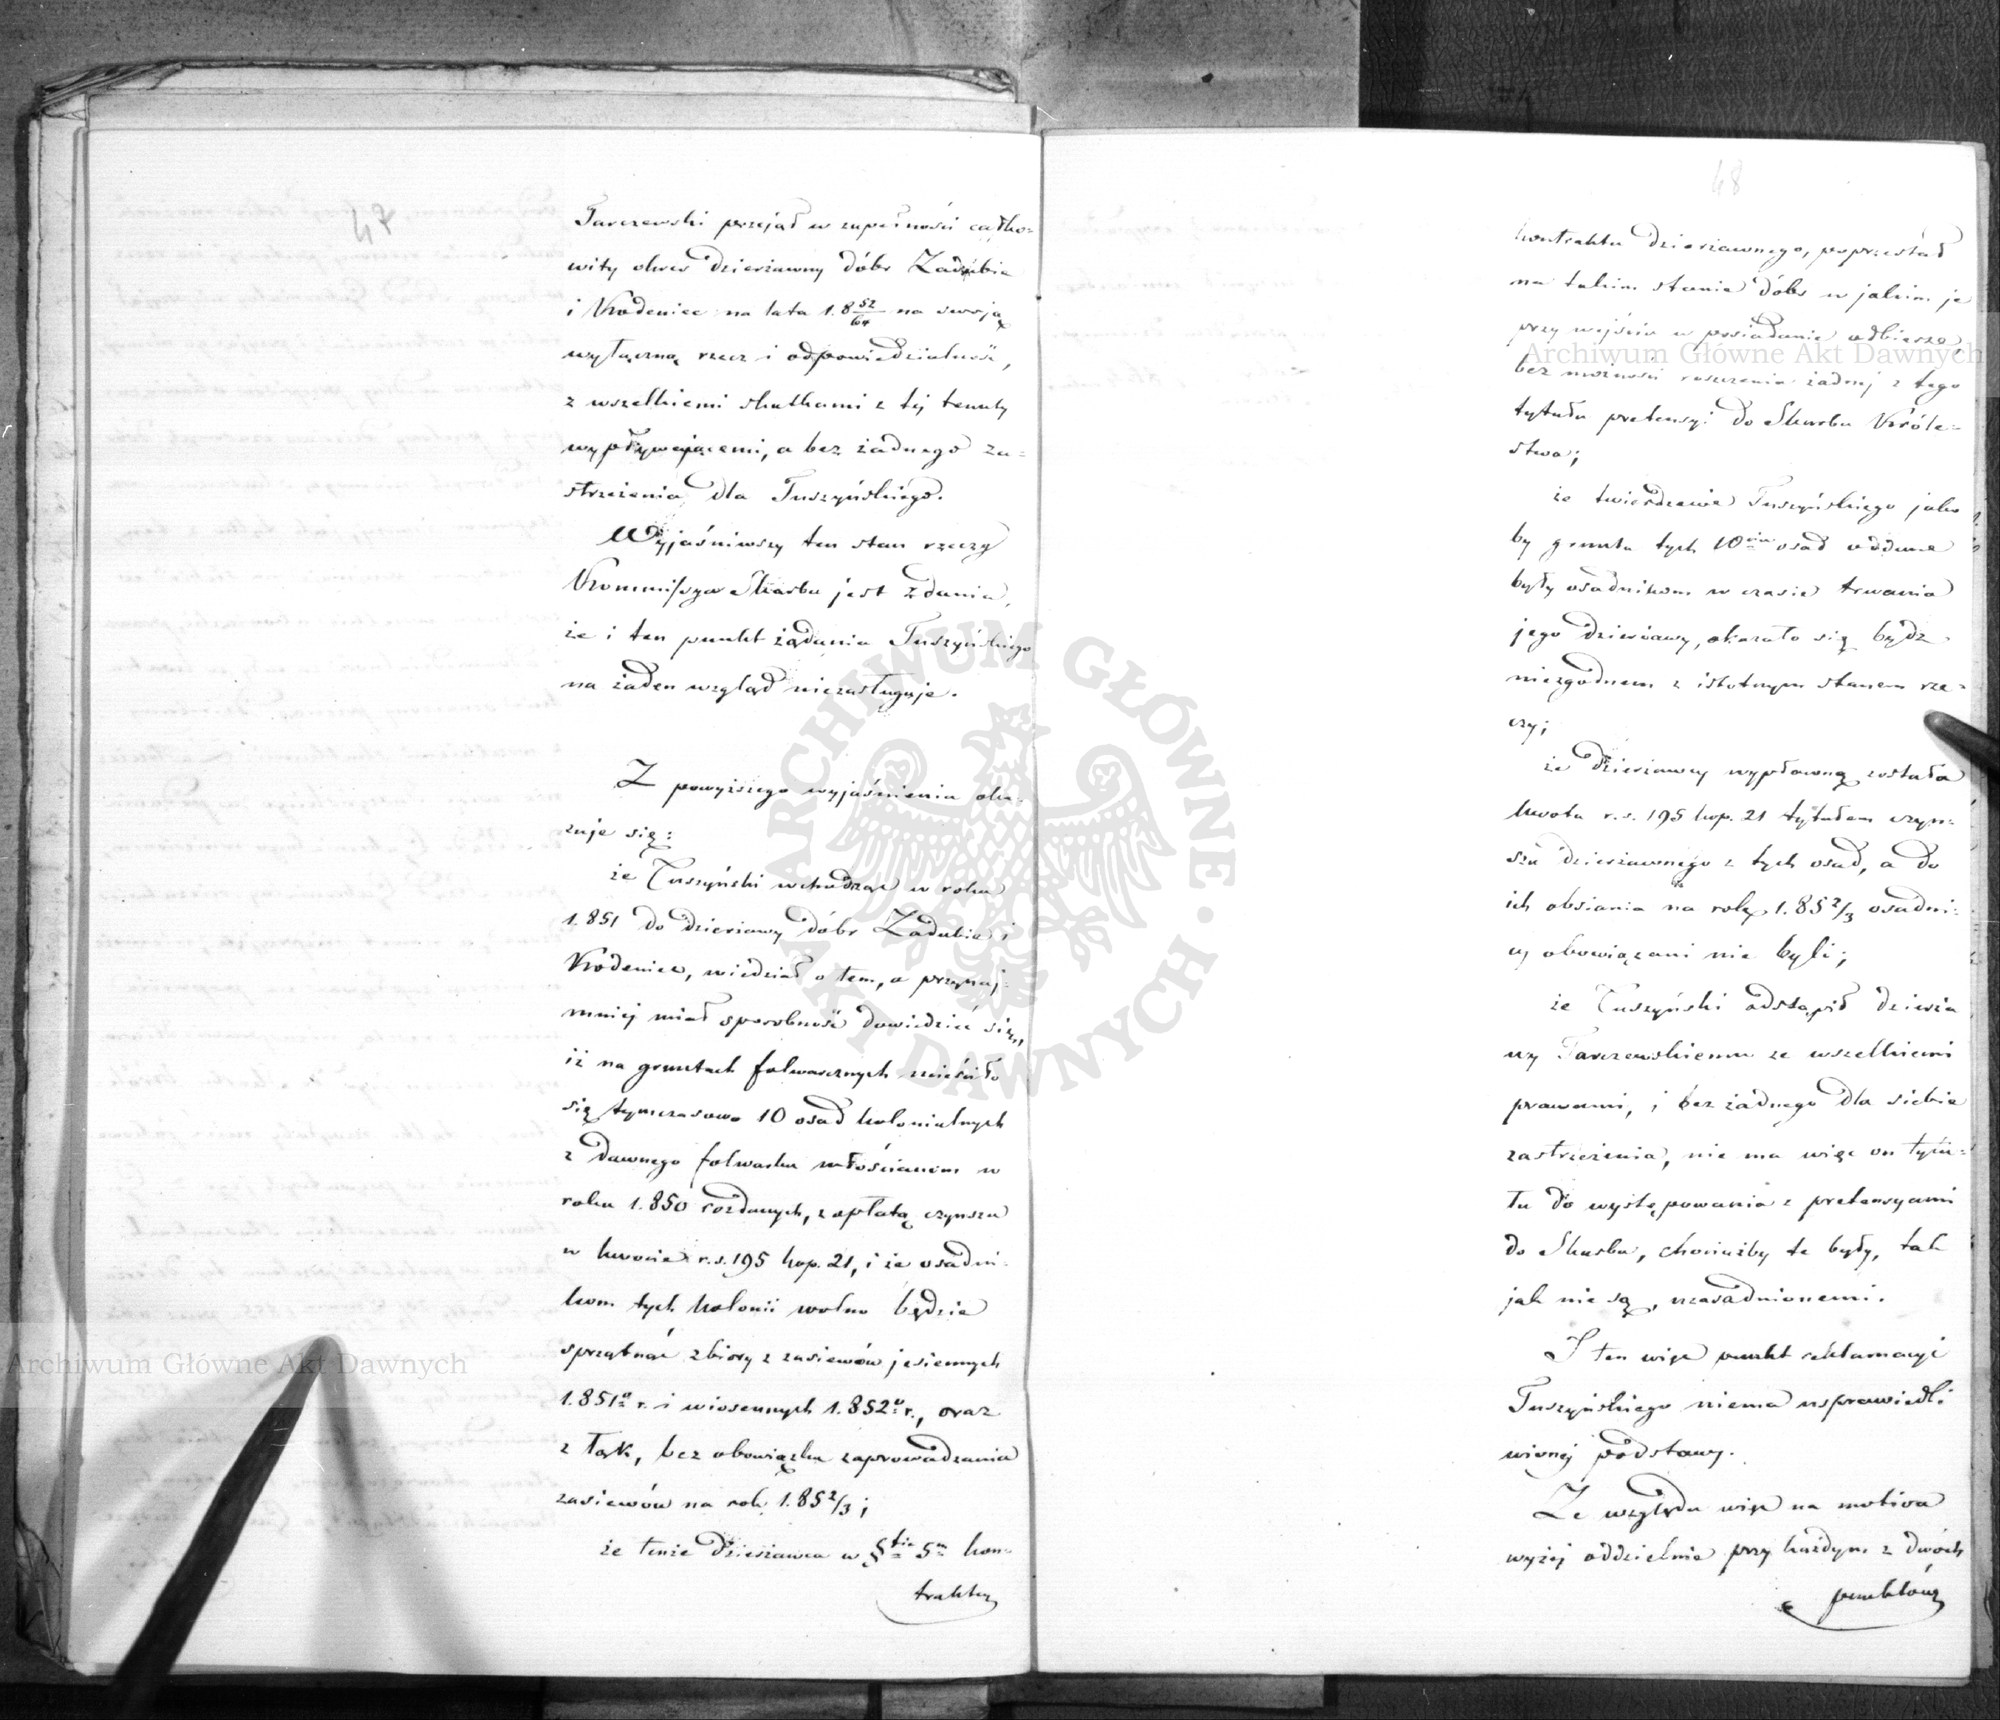 47
Tarczewski przejął w zupełności całko-
wity okres dzierżawny dóbr Zadubie
i Krodeniec na lata 1.8 52/64 na swoją
wyłączną rzecz i odpowiedzialność,
z wszelkiemi skutkami z tej tenuty
wypływającemi, a bez żadnego za-
strzeżenia dla Tuszyńskiego.
Wyjaśniwszy ten stan rzeczy
Kommissya Skarbu jest zdania,
że i ten punkt żądania Tuszyńskiego
na żaden wzgląd niezasługuje.
Z powyższego wyjaśnienia oka-
zuje się:
że Tuszyński wchodząc w roku
1.851 do dzierżawy dóbr Zadubie i
Krodeniec, wiedział o tem, a przynaj-
mniej miał sposobność dowiedzieć się,
iż na gruntach folwarcznych mieściło
się tymczasowo 10 osad kolonialnych
z dawnego folwarku włościanom w
roku 1.850 rozdanych, z opłatą czynszu
w kwocie r.s. 195 kop. 21, i że osadni-
kom tych kolonii wolno będzie
sprzątnąć zbiory z zasiewów jesiennych
1.851o r. i wiosennych 1.852o r., oraz
z łąk, bez obowiązku zaprowadzania
zasiewów na rok 1.852/3;
że tenże dzierżawca w §fie 5m kon-
traktu
48
kontraktu dzierżawnego, poprzestał
na takim stanie dóbr w jakim je
przy wejściu w posiadanie odbierze,
bez możności roszczenia żadnej z tego
tytułu pretensyi do Skarbu Króle-
stwa;
że twierdzenie Tuszyńskiego jako
by grunta tych 10ciu osad oddane
były osadnikom w czasie trwania
jego dzierżawy, okazało się bydź
niezgodnem z istotnym stanem rze-
czy;
że dzierżawcy wypłaconą została
kwota r.s. 195 kop. 21 tytułem czyn-
szu dzierżawnego z tych osad, a do
ich obsiania na rok 1.852/3 osadni-
cy obowiązani nie byli;
że Tuszyński odstąpił dzierża
wy Tarczewskiemu ze wszelkiemi
prawami, i bez żadnego dla siebie
zastrzeżenia, nie ma więc on tytu-
łu do występowania z pretensyami
do Skarbu, chociażby te były, tak
jak nie są, uzasadnionemi.
I ten więc punkt reklamacyi
Tuszyńskiego niema usprawiedli
wionej podstawy.
Ze względu więc na motiva
wyżej oddzielnie przy każdym z dwóch
punktów
Archiwum Główne Akt Dawnych
Archiwum Główne Akt Dawnych
ARCHIWUM GŁÓWNE · AKT DAWNYCH ·